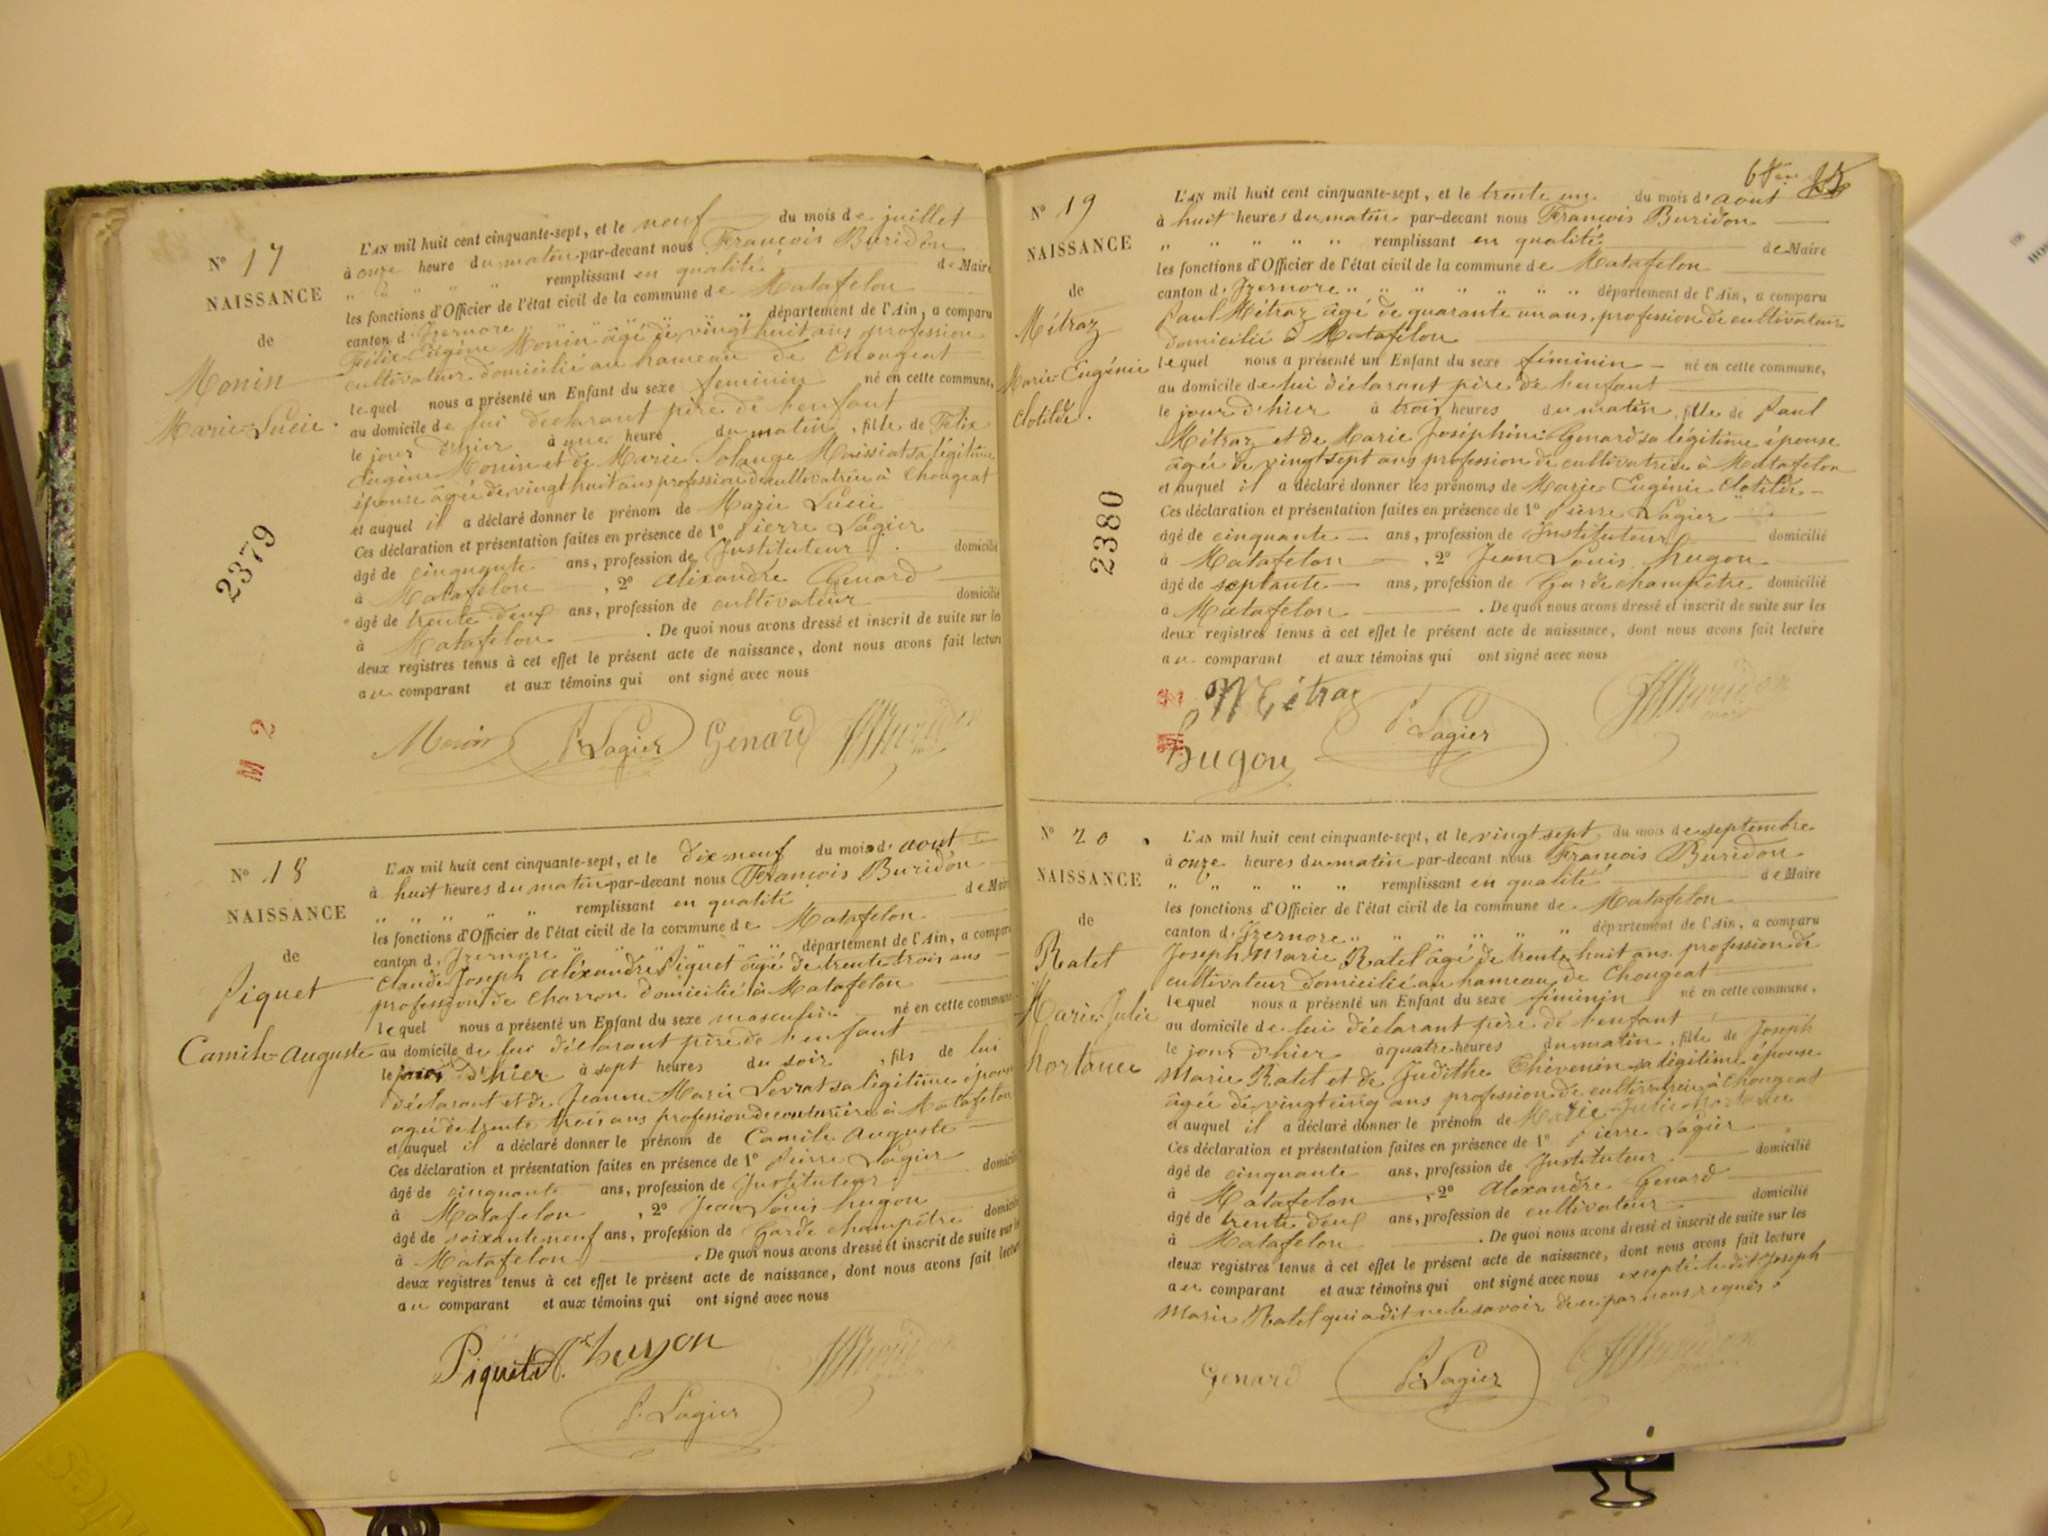 N° 17
NAISSANCE
de
Monin
Marie-Lucie.
2379
M 2
L'AN mil huit cent cinquante-sept, et le neuf du mois de juillet
à onze heure du matin par-devant nous François Buridon
" " " " " remplissant en qualité de Maire
les fonctions d'Officier de l'état civil de la commune de Matafelon
canton d'Izernore " " " " " " département de l'Ain, a comparu
Félix-Eugène Monin âgé de vingt huit ans profession
cultivateur domicilié au hameau de Chougeat
lequel nous a présenté un Enfant du sexe féminin né en cette commune,
au domicile de lui déclarant père de l'enfant
le jour d'hier à une heure du matin, fille de Félix
Eugène Monin et de Marie Solange Maissiat sa légitime
épouse âgée de vingt huit ans profession de cultivatrice à Chougeat
et auquel il a déclaré donner le prénom de Marie Lucie
Ces déclaration et présentation faites en présence de 1° Pierre Lagier
âgé de cinquante ans, profession de Instituteur domicilié
à Matafelon, 2° Alexandre Genard
âgé de trente deux ans, profession de cultivateur domicilié
à Matafelon. De quoi nous avons dressé et inscrit de suite sur les
deux registres tenus à cet effet le présent acte de naissance, dont nous avons fait lecture
au comparant et aux témoins qui ont signé avec nous
Monin P. Lagier Genard Buridon
N° 18
NAISSANCE
de
Piquet
Camile-Auguste
L'AN mil huit cent cinquante-sept, et le dix-neuf du mois d'aout
à huit heures du matin par-devant nous François Buridon
" " " " " remplissant en qualité de Maire
les fonctions d'Officier de l'état civil de la commune de Matafelon
canton d'Izernore " " " " " " département de l'Ain, a comparu
Claude Joseph Alexandre Piquet âgé de trente trois ans
profession de Charron domicilié à Matafelon
lequel nous a présenté un Enfant du sexe masculin né en cette commune
au domicile de lui déclarant père de l'enfant
le jour d'hier à sept heures du soir, fils de lui
déclarant et de Jeanne Marie Levrat sa légitime épouse
agée de trente trois ans profession de couturière à Matafelon
et auquel il a déclaré donner le prénom de Camile Auguste
Ces déclaration et présentation faites en présence de 1° Pierre Lagier
âgé de cinquante ans, profession de Instituteur domicilié
à Matafelon, 2° Jean Louis hugon
âgé de soixante neuf ans, profession de Garde champêtre domicilié
à Matafelon. De quoi nous avons dressé et inscrit de suite sur les
deux registres tenus à cet effet le présent acte de naissance, dont nous avons fait lecture
au comparant et aux témoins qui ont signé avec nous
Piquet hugon Buridon
P. Lagier
N° 19
NAISSANCE
de
Métraz
Marie-Eugénie
Clotilde.
2380
L'AN mil huit cent cinquante-sept, et le trente un du mois d'aout
à huit heures du matin par-devant nous François Buridon
" " " " " remplissant en qualité de Maire
les fonctions d'Officier de l'état civil de la commune de Matafelon
canton d'Izernore " " " " " " " département de l'Ain, a comparu
Paul Métraz âgé de quarante un ans, profession de cultivateur
domicilié à Matafelon
lequel nous a présenté un Enfant du sexe féminin né en cette commune,
au domicile de lui déclarant père de l'enfant
le jour d'hier à trois heures du matin, fille de Paul
Métraz et de Marie Joséphine Genard sa légitime épouse
âgée de vingt sept ans profession de cultivatrice à Matafelon
et auquel il a déclaré donner les prénoms de Marie Eugénie Clotilde
Ces déclaration et présentation faites en présence de 1° Pierre Lagier
âgé de cinquante ans, profession de Instituteur domicilié
à Matafelon, 2° Jean Louis hugon
âgé de septante ans, profession de Garde champêtre domicilié
à Matafelon. De quoi nous avons dressé et inscrit de suite sur les
deux registres tenus à cet effet le présent acte de naissance, dont nous avons fait lecture
au comparant et aux témoins qui ont signé avec nous
Métraz P. Lagier Buridon
hugon
N° 20
NAISSANCE
de
Ratel
Marie-Julie
hortance
L'AN mil huit cent cinquante-sept, et le vingt sept du mois de septembre
à onze heures du matin par-devant nous François Buridon
" " " " " remplissant en qualité de Maire
les fonctions d'Officier de l'état civil de la commune de Matafelon
canton d'Izernore " " " " " " département de l'Ain, a comparu
Joseph Marie Ratel âgé de trente huit ans profession de
cultivateur domicilié au hameau de Chougeat
lequel nous a présenté un Enfant du sexe féminin né en cette commune,
au domicile de lui déclarant père de l'enfant
le jour d'hier à quatre heures du matin, fille de Joseph
Marie Ratel et de Judithe Thévenin sa légitime épouse
âgée de vingt cinq ans profession de cultivatrice à Chougeat
et auquel il a déclaré donner le prénom de Marie Julie hortance
Ces déclaration et présentation faites en présence de 1° Pierre Lagier
âgé de cinquante ans, profession de Instituteur domicilié
à Matafelon, 2° Alexandre Genard
âgé de trente deux ans, profession de cultivateur domicilié
à Matafelon. De quoi nous avons dressé et inscrit de suite sur les
deux registres tenus à cet effet le présent acte de naissance, dont nous avons fait lecture
au comparant et aux témoins qui ont signé avec nous excepté ledit Joseph
Marie Ratel qui a dit ne le savoir de ce par nous requis.
Genard P. Lagier Buridon